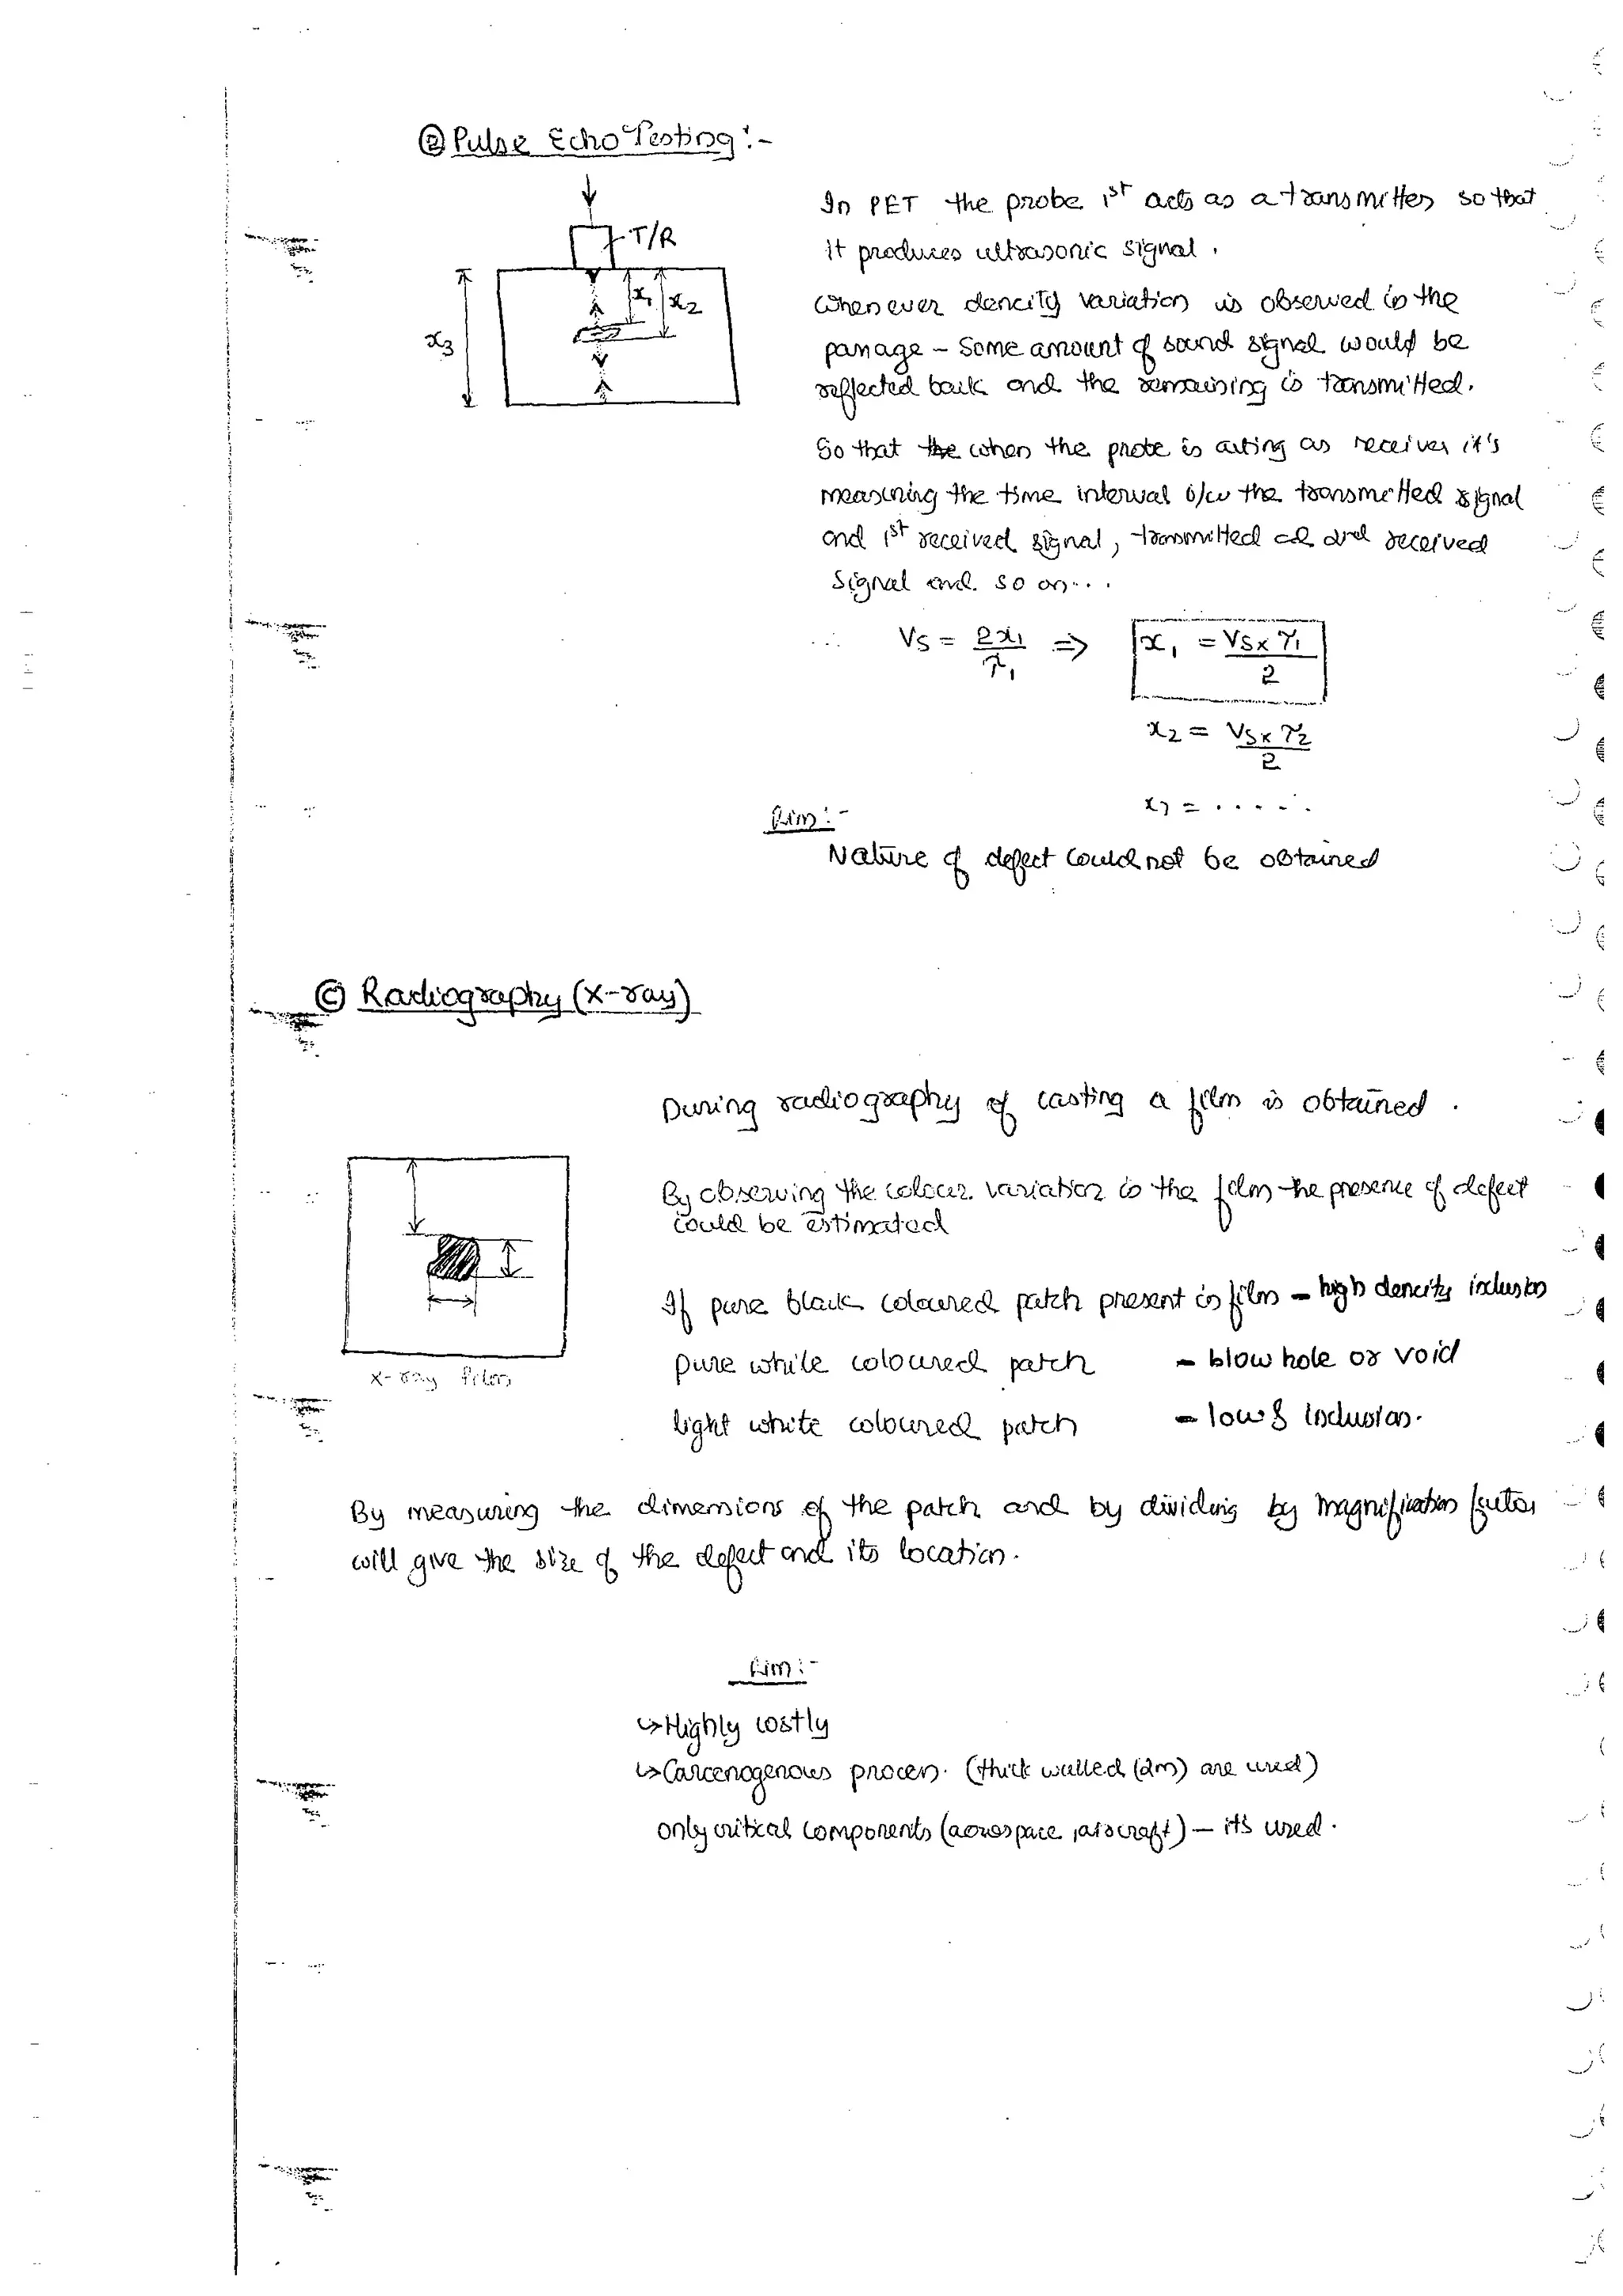 ② Pulse Echo Testing :-
T/R
x1 x2
x3
In PET the probe 1st acts as a transmitter so that
it produces ultrasonic signal.
Whenever dencity variation is observed in the
passage - Some amount of sound signal would be
reflected back and the remaining is transmitted.
So that the when the probe is acting as receiver it's
measuring the time interval b/w the transmitted signal
and 1st received signal, transmitted and 2nd received
signal and so on...
∴ Vs = 2x1/τ1 ⇒ x1 = Vs x τ1 / 2
x2 = Vs x τ2 / 2
x3 = .....
Lim :-
Nature of defect could not be obtained
© Radiography (x-ray)
During radiography of casting a film is obtained.
By observing the colour variation in the film the presence of defect
could be estimated
If pure black coloured patch present in film - high dencity inclusion
pure white coloured patch - blow hole or void
light white coloured patch - low ρ inclusion.
x-ray film
By measuring the dimensions of the patch and by dividing by magnification factor
will give the size of the defect and its location.
Lim :-
↳ Highly costly
↳ Carcenogenous process. (thick walled (2m) are used)
only critical components (aerospace, aircraft) - it's used.